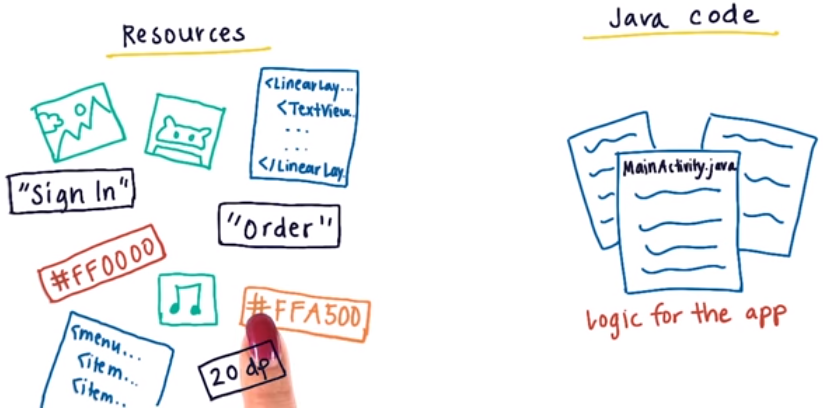 Resources
<LinearLay...
<TextView..
...
...
</LinearLay.
"Sign In"
"Order"
#FF0000
#FFA500
<menu...
<item...
<item..
20 dp
Java code
MainActivity.java
logic for the app